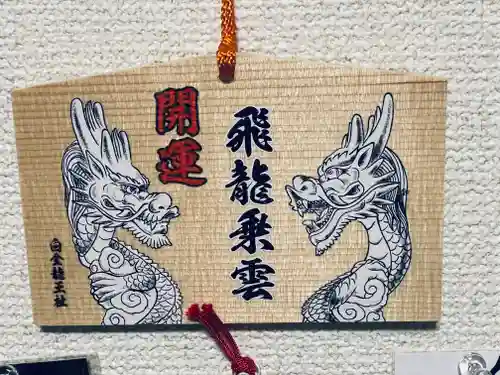 開運
飛龍乗雲
白金龍王社